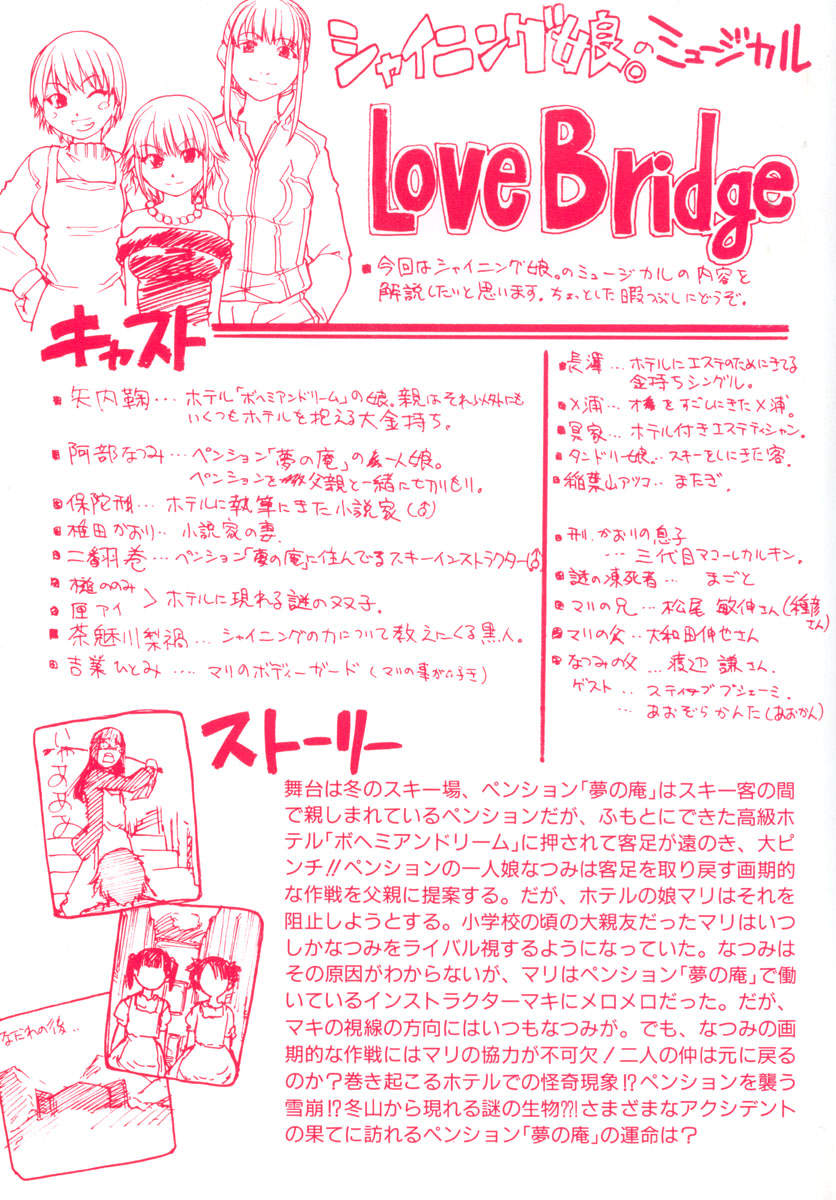 シャイニング娘。のミュージカル
Love Bridge
▪今回はシャイニング娘。のミュージカルの内容を
解説したいと思います。ちょっとした暇つぶしにどうぞ。
キャスト
▪矢内鞠…ホテル「ボヘミアンドリーム」の娘。親はそれ以外にも
いくつもホテルを抱える大金持ち。
▪阿部なつみ…ペンション「夢の庵」の一人娘。
ペンションを父親と一緒に切りもり。
▪保陀 …ホテルに執筆にきた小説家(♂)
▪椎田かおり…小説家の妻。
▪二翻巻…ペンション「夢の庵」に住んでるスキーインストラクター(♂)
▪槌ののみ
▪匣アイ
〉ホテルに現れる謎の双子。
▪茶魅川梨禍…シャイニングの力について教えにくる黒人。
▪吉業ひとみ…マリのボディーガード(マリの事が好き)
▪長澤…ホテルにエステのためにきてる
金持ちシングル。
▪メ浦… をすごしにきたメ浦。
▪具家…ホテル付きエステティシャン。
▪タンドリー娘。…スキーをしにきた客。
▪稲葉山アツコ…またぎ。
▪刑、かおりの息子
…三代目マコーレカルキン。
▪謎の凍死者…まごと
▪マリの兄…松尾 敏伸さん(種彦さん)
▪マリの父…大和田伸也さん
▪なつみの父…渡辺 謙さん
ゲスト…スティーブブシェーミ。
…あおぞらかんた(あおかん)
ストーリー
いやああああ
なだれの後‥
舞台は冬のスキー場、ペンション「夢の庵」はスキー客の間
で親しまれているペンションだが、ふもとにできた高級ホ
テル「ボヘミアンドリーム」に押されて客足が遠のき、大ピ
ンチ!!ペンションの一人娘なつみは客足を取り戻す画期的
な作戦を父親に提案する。だが、ホテルの娘マリはそれを
阻止しようとする。小学校の頃の大親友だったマリはいつ
しかなつみをライバル視するようになっていた。なつみは
その原因がわからないが、マリはペンション「夢の庵」で働
いているインストラクターマキにメロメロだった。だが、
マキの視線の方向にはいつもなつみが。でも、なつみの画
期的な作戦にはマリの協力が不可欠!二人の仲は元に戻る
のか?巻き起こるホテルでの怪奇現象!?ペンションを襲う
雪崩!?冬山から現れる謎の生物??!さまざまなアクシデント
の果てに訪れるペンション「夢の庵」の運命は?